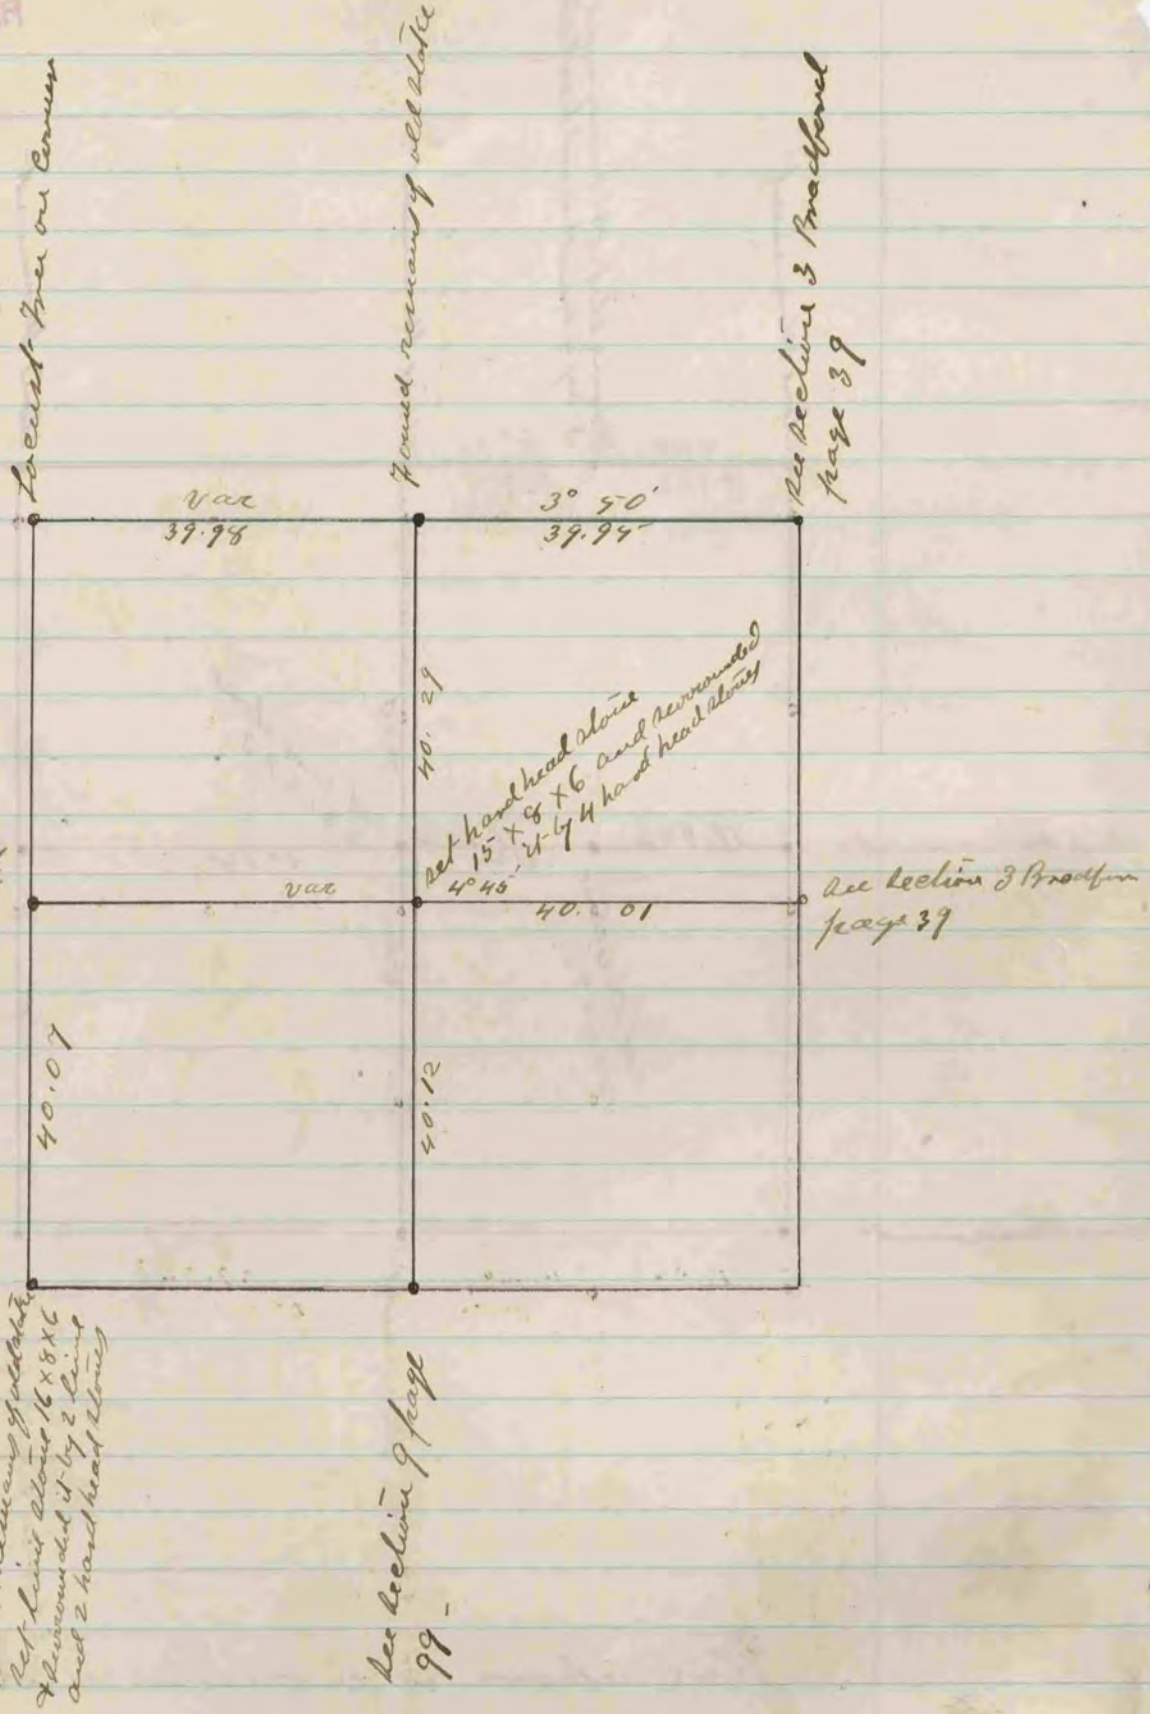 Locust Tree on Corner
Found remains of old stake
See Section 3 Bradford
page 39
var
3° 50'
39.98
39.95
40. 29
set hard head stone
15 x 8 x 6 and surrounded
it by 4 hard head stones
var
4° 45'
40. 01
See Section 3 Bradford
page 39
40.07
40.12
remains of old stake
set lime stone 16 x 8 x 6
& surrounded it by 2 lime
and 2 hard head stones
See Section 9 page
99-